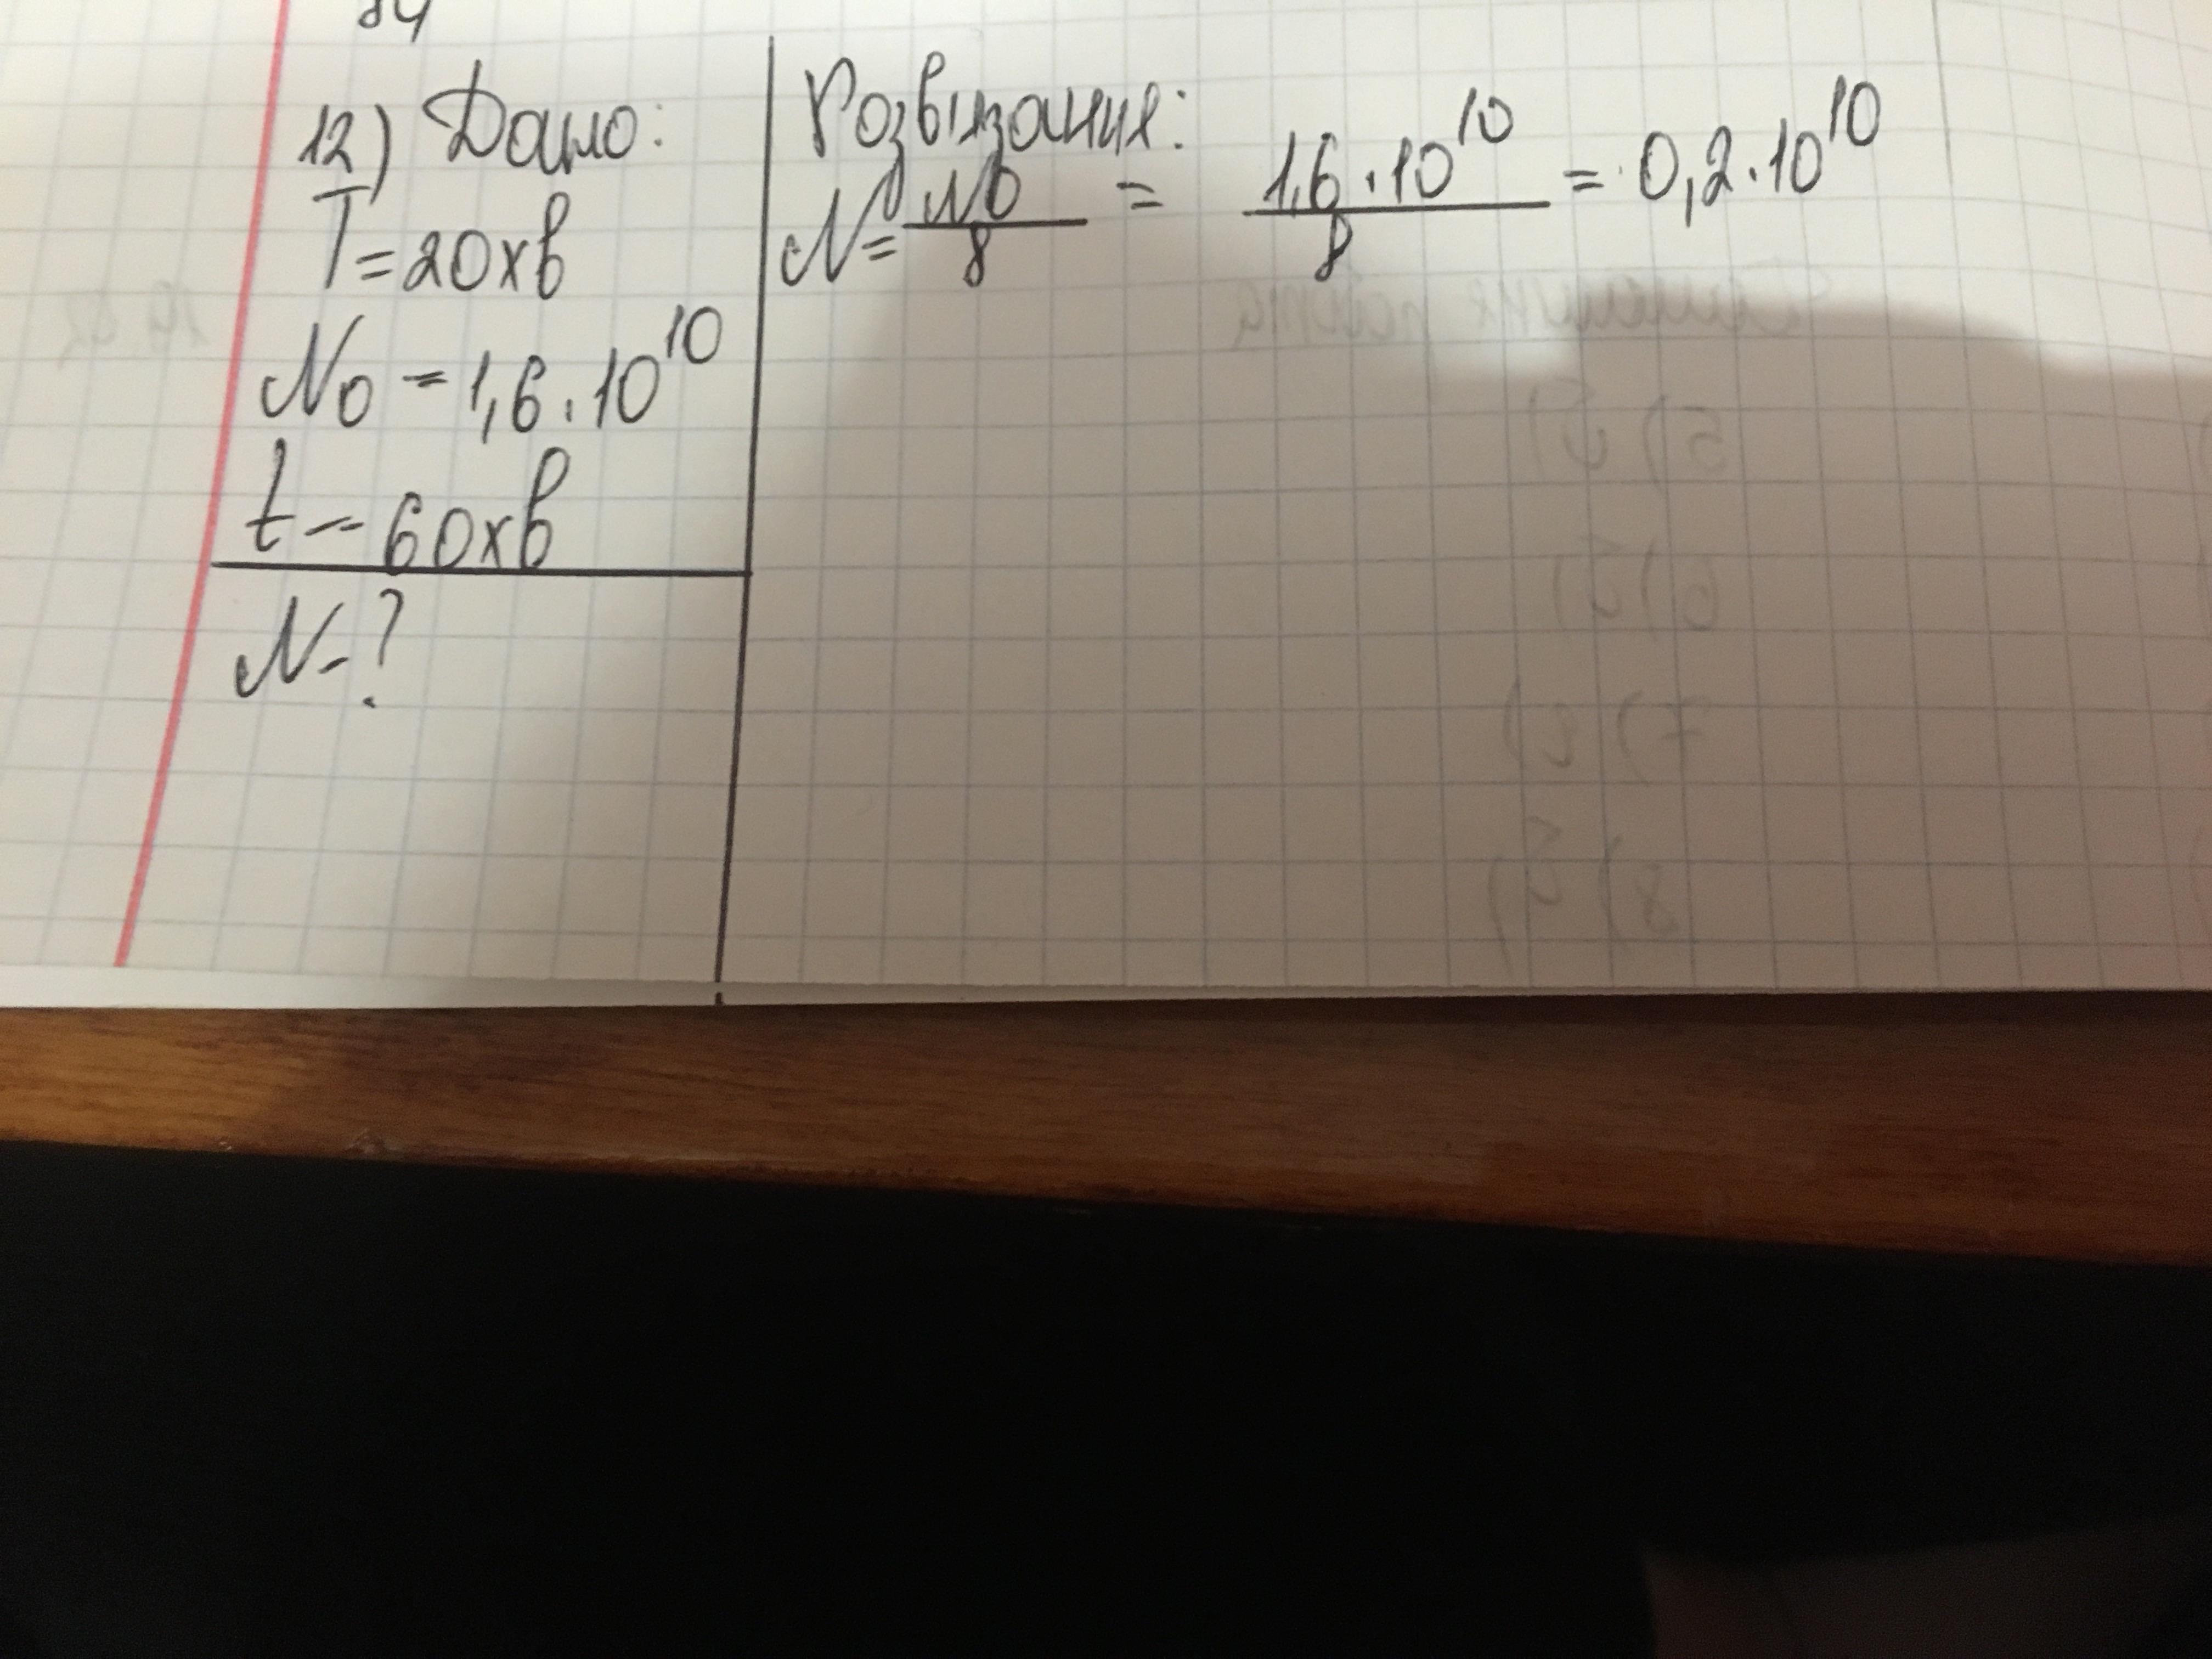 84
12) Дано:
T = 20хв
N₀ = 1,6 · 10¹⁰
t = 60хв
N - ?
Розв'язання:
N = N₀/8 = 1,6 · 10¹⁰/8 = 0,2 · 10¹⁰
5) б)
6) б)
8) б)